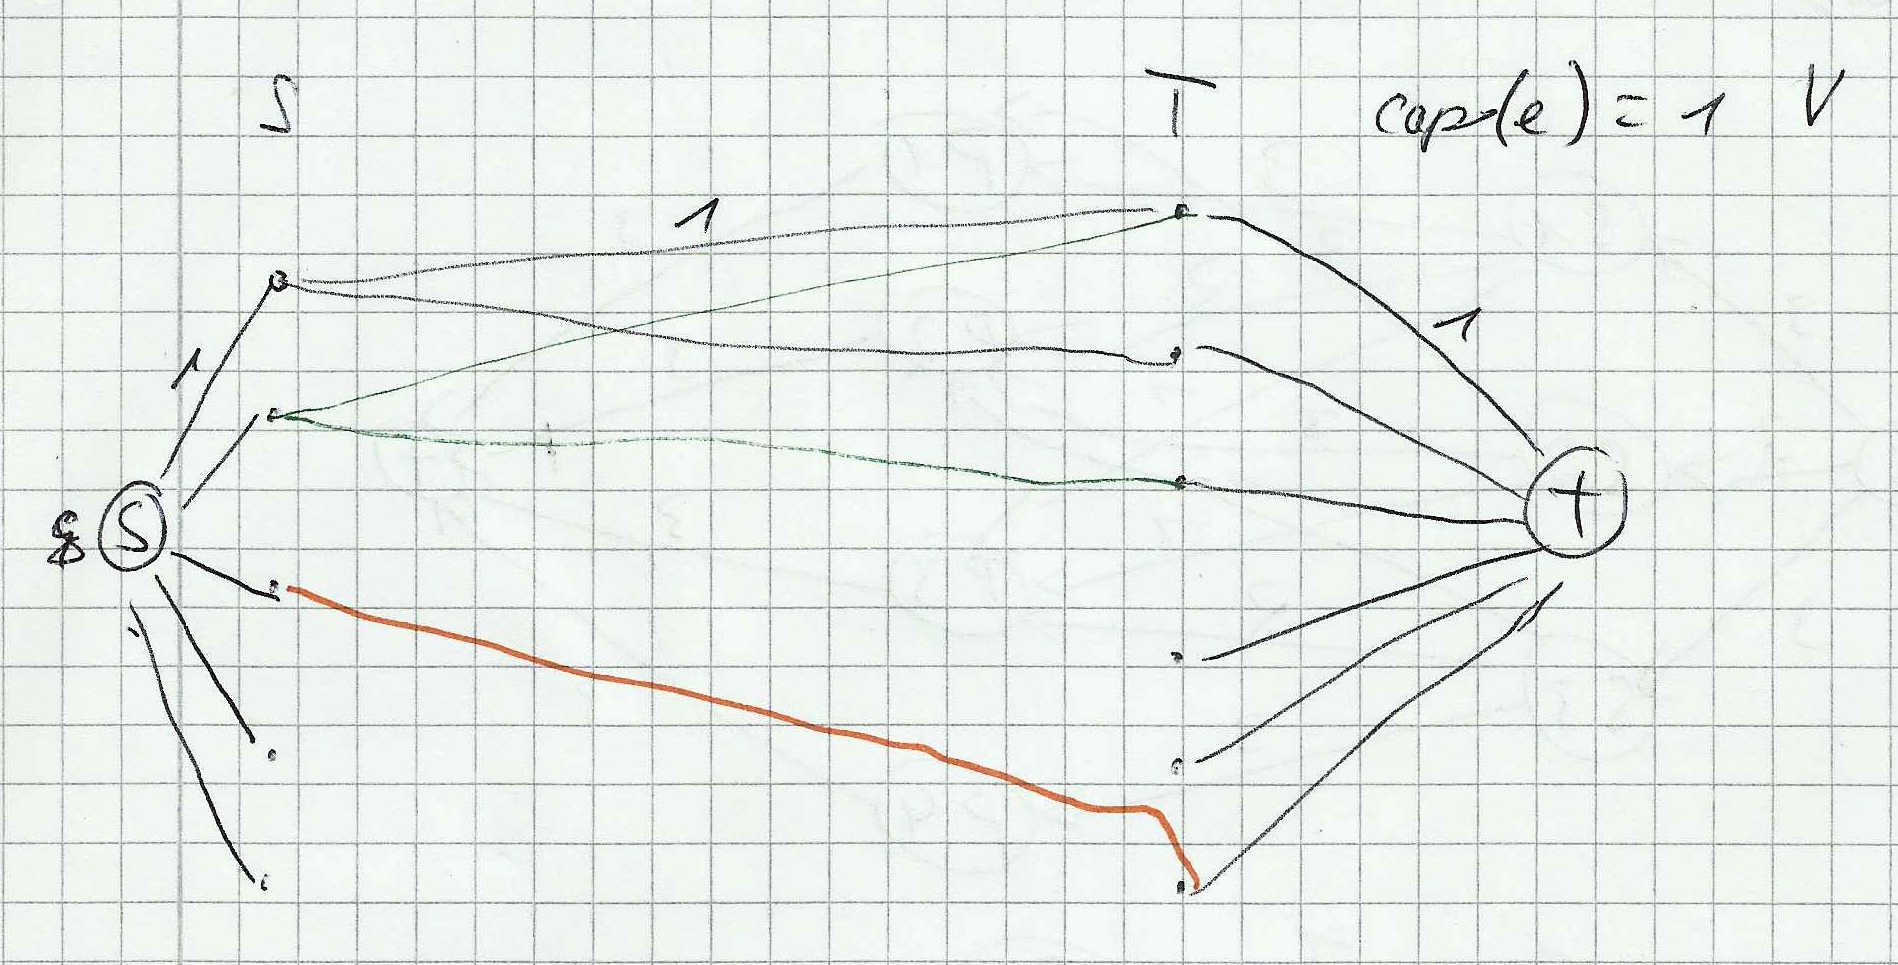 S T cap(e) = 1 V
1
1
1
S
t